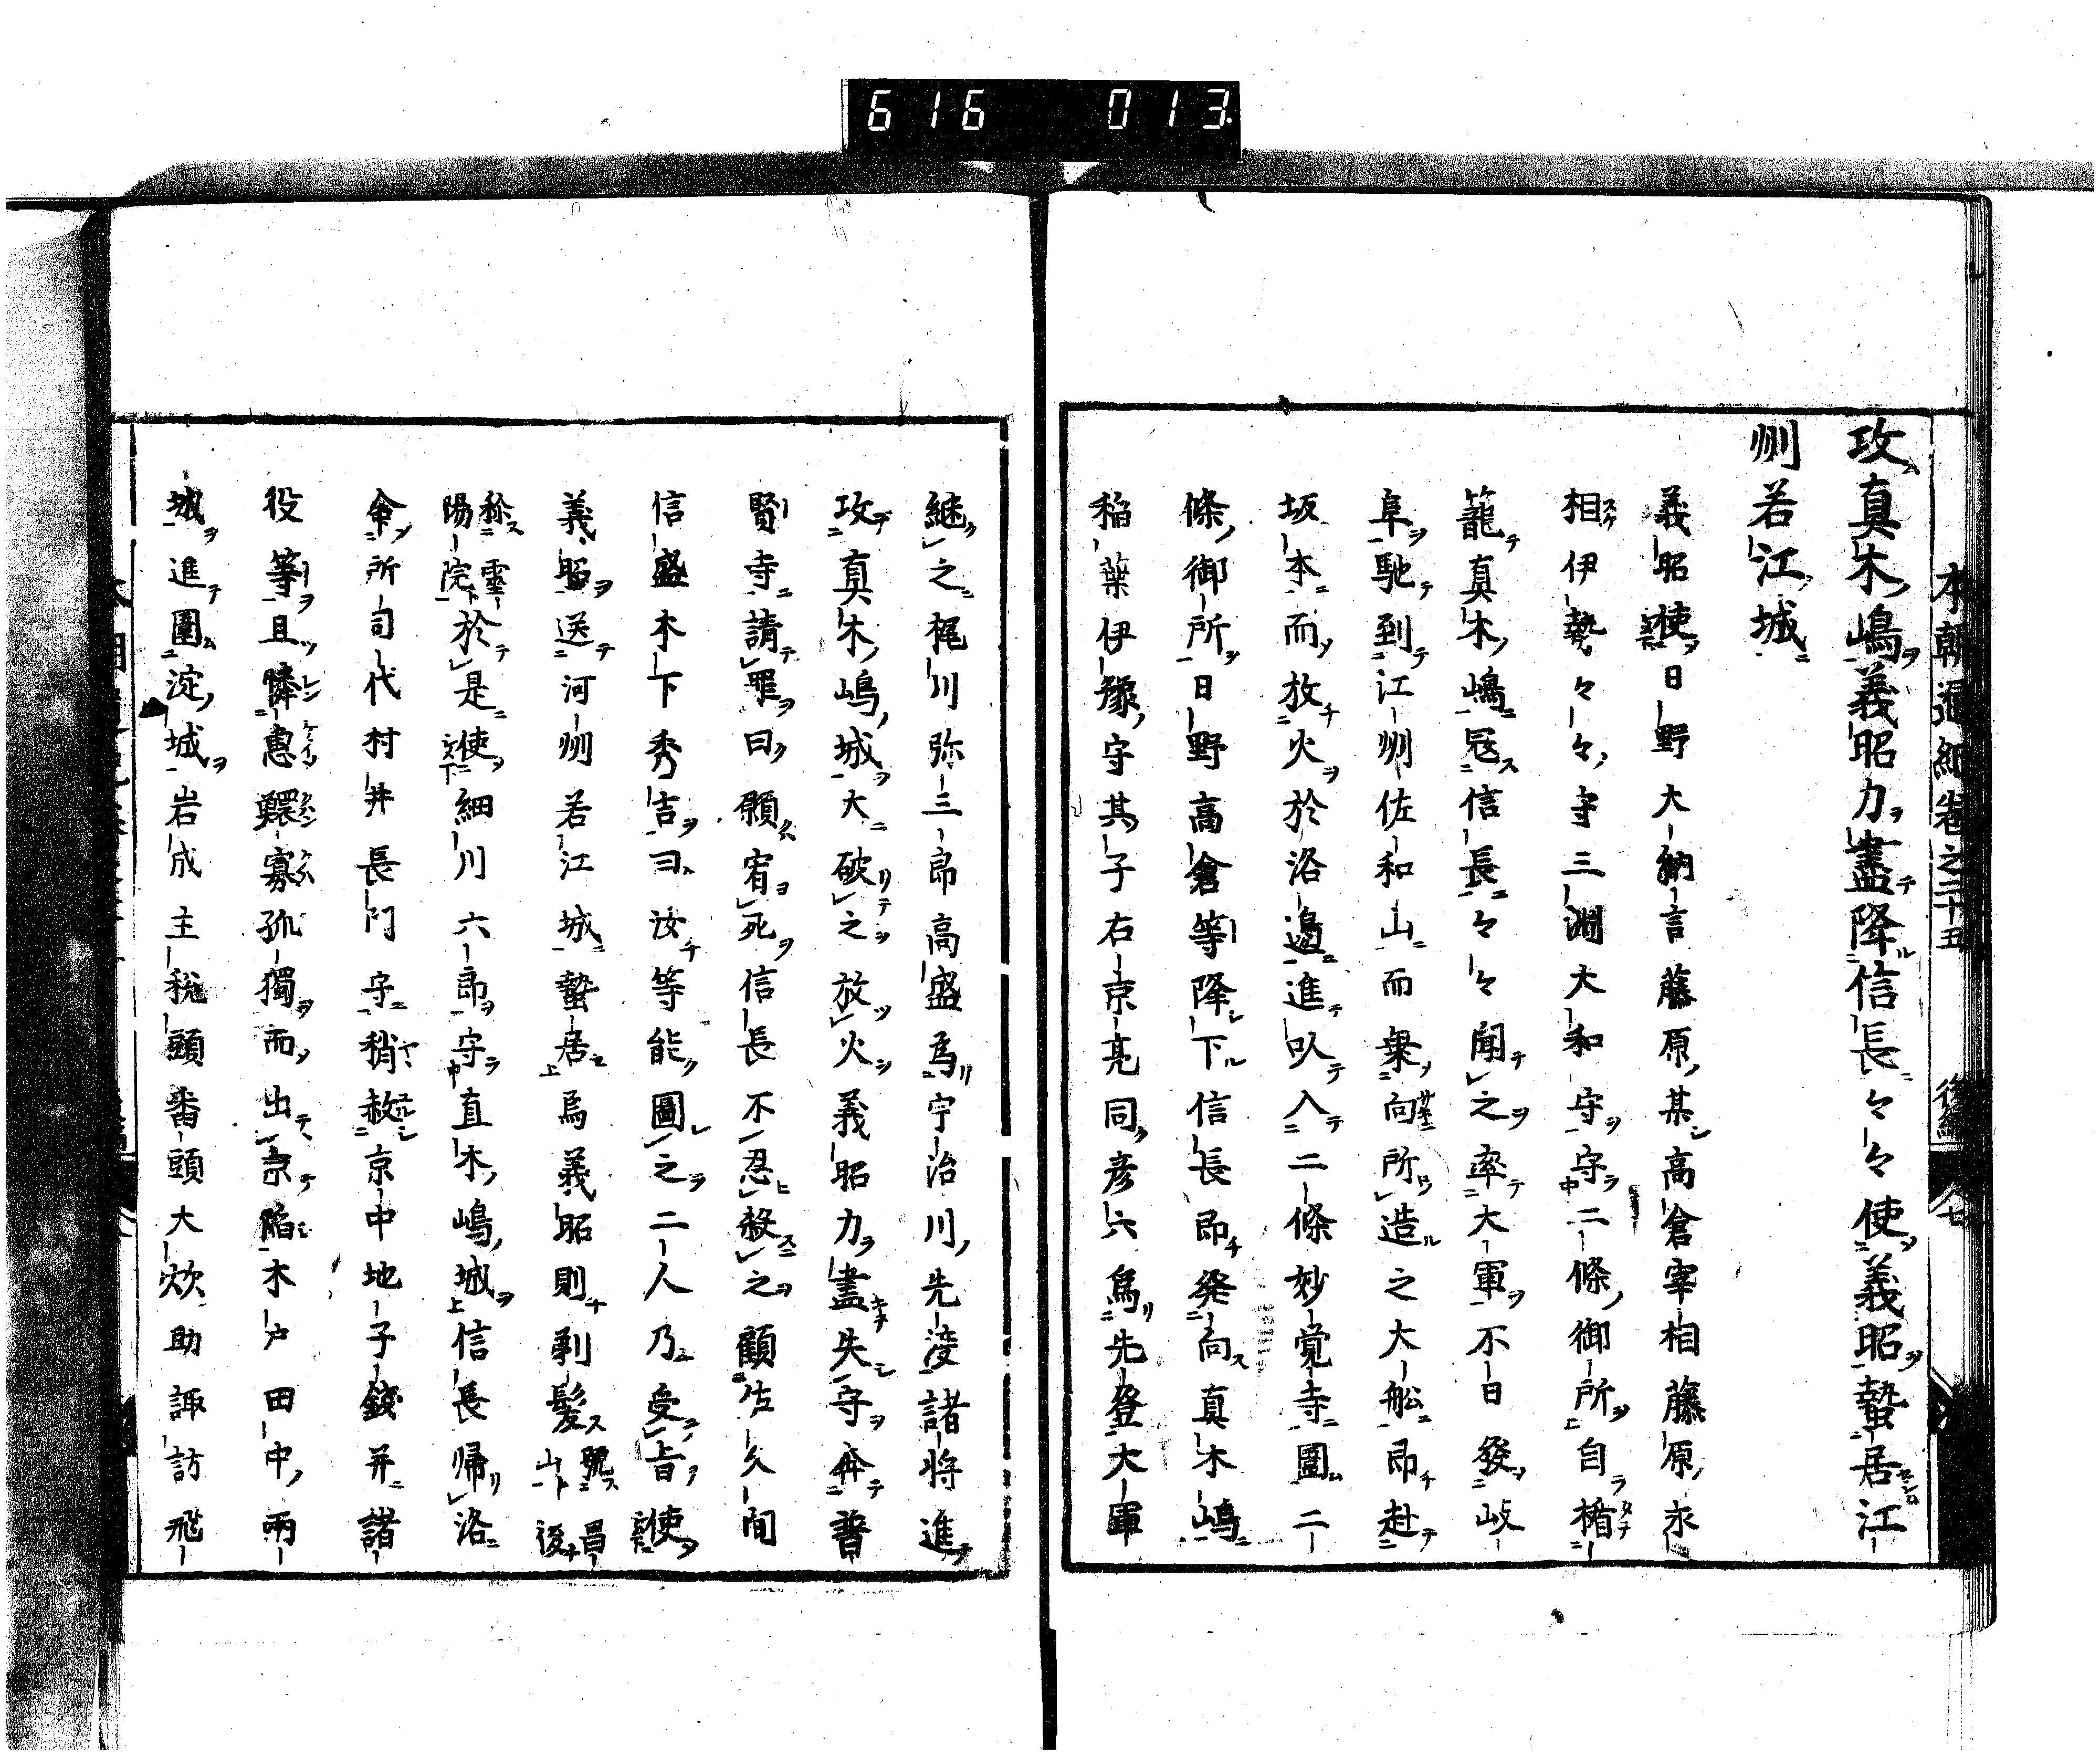 616 013
本朝通紀卷之二十五 後編 七
攻真木嶋義昭力盡降信長々々使義昭蟄居江
州若江城
義昭使日野大納言藤原某高倉宰相藤原永
相伊勢々々守三淵大和守守二條御所自楯
籠真木嶋冦信長々々聞之率大軍不日發岐
阜馳到江州佐和山而乗向所造之大舩即赴
坂本而放火於洛邉進以入二條妙覚寺圍二
條御所日野高倉等降下信長即発向真木嶋
稲葉伊豫守其子右京亮同彦六為先登大軍
継之梶川弥三郎高盛為宇治川先凌諸將進
攻真木嶋城大破之放火義昭力盡失守奔普
賢寺請罪曰願宥死信長不忍赦之顧佐久間
信盛木下秀吉曰汝等能圖之二人乃受旨使
義昭送河州若江城蟄居焉義昭則剃髪號昌山後
称靈陽院於是使細川六郎守直木嶋城信長帰洛
命所司代村井長門守稍赦京中地子錢并諸
役等且憐惠鰥寡孤獨而出京陥木戸田中兩
城進圍淀城岩成主税頭番頭大炊助諏訪飛